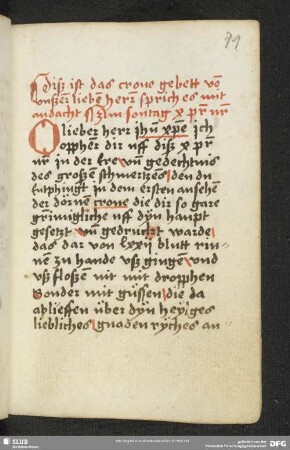 79
Disz ist das crone gebett von
vnszer lieben herrn sprich es mit
andacht zum sontag x pr nr
O lieber herr jhu xpe ich
oppher dir vff disz x pr
nr in der ere vnn gedechtnis
des groszen schmertzes den du
Entphingt in dem ersten ansehen
der dörnen crone die dir so gare
grimigliche vff dyn haupt
gesetzt vnn gedruckt warde
das dar von lxxij blutt rin¬
nen zu hande vsz gingen vnd
vsz floszen nit mit dropphen
Sonder mit güssen die da
ablieffen über dyn heyiges
liebliches gnaden ryches an
SLUB
DFG